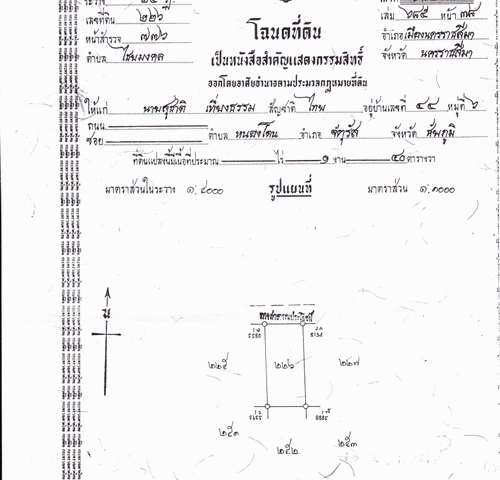 ระวาง
เลขที่ดิน ๒๒๖
หน้าสำรวจ ๗๗๖
ตำบล ไชยมงคล
โฉนดที่ดิน
เป็นหนังสือสำคัญแสดงกรรมสิทธิ์
ออกโดยอาศัยอำนาจตามประมวลกฎหมายที่ดิน
เล่ม หน้า
อำเภอ เมืองนครราชสีมา
จังหวัด นครราชสีมา
ให้แก่ นายสุชาติ เที่ยงธรรม สัญชาติ ไทย อยู่บ้านเลขที่ ๔๔ หมู่ที่ ๖
ถนน
ซอย ตำบล หนองโดน อำเภอ จัตุรัส จังหวัด ชัยภูมิ
ที่ดินแปลงนี้มีเนื้อที่ประมาณ ไร่ ๑ งาน ๔๐ ตารางวา
มาตราส่วนในระวาง ๑:๔๐๐๐ รูปแผนที่ มาตราส่วน ๑:๑๐๐๐
ทางสาธารณประโยชน์
๒๒๕ ๒๒๖ ๒๒๗
๒๕๑ ๒๕๒ ๒๕๓